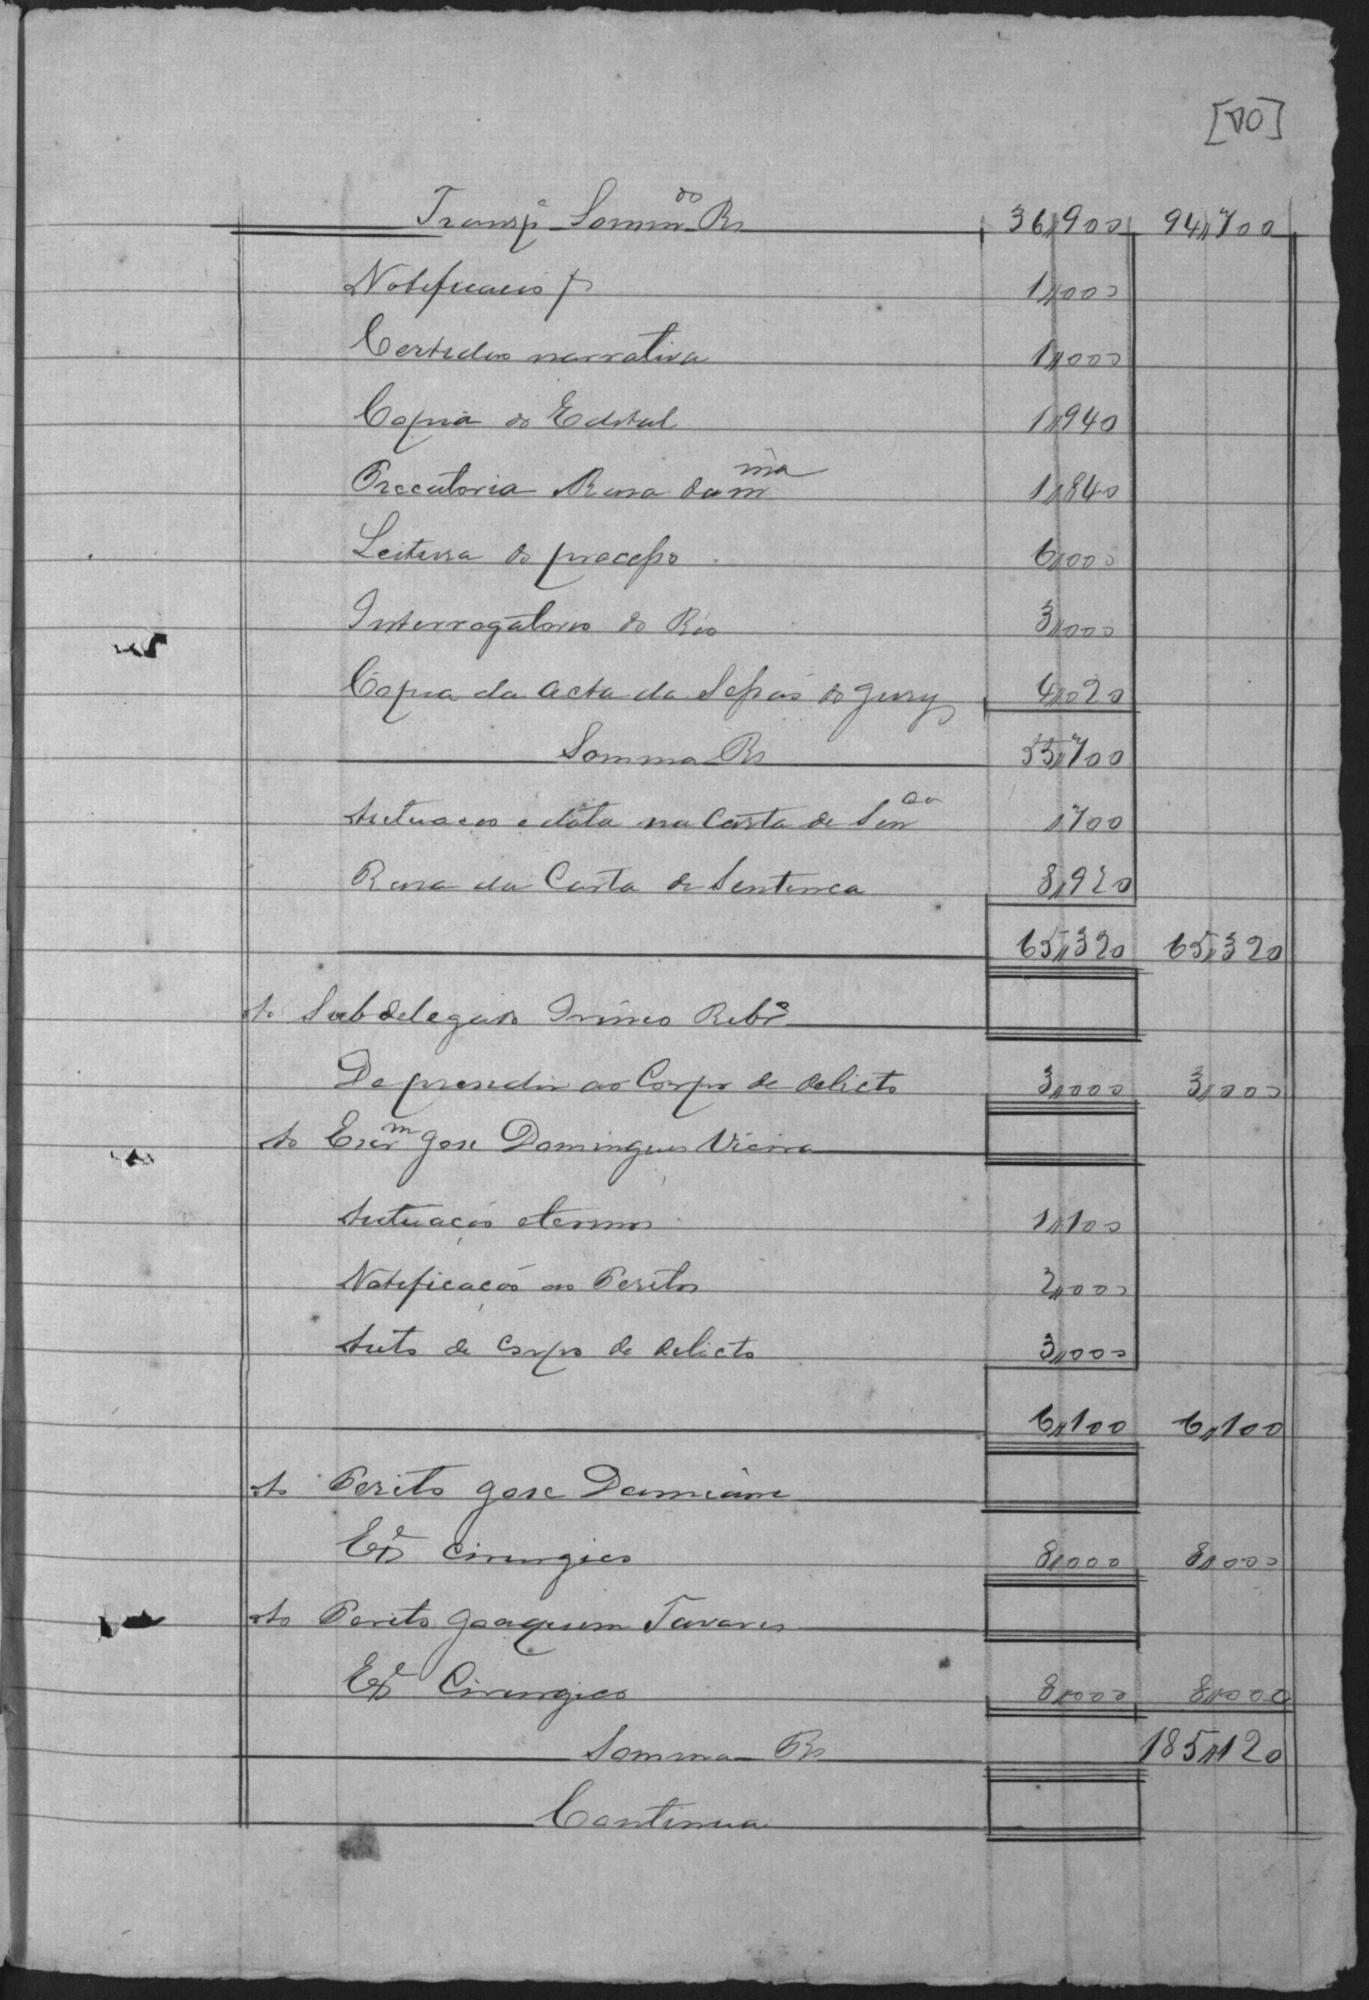 [70]
Transp.e Sommdo Rs 36,,900 94,,700
Notificação 1,,000
Certidão narrativa 1,,000
Copia do Edital 1,,940
Precatoria Rasa da mma 1,,840
Leitura do processo 6,,000
Interrogatorio do Réo 3,,000
Copia da acta da Sessão do jury 4,,020
Somma Rs 55,,700
Autuacão e data na Carta de Sença ,,700
Rasa da Carta de Sentença 8,,920
65,,320 65,,320
Ao Subdelegado Irineo Rebo
De presedir ao Corpo de delicto 3,,000 3,,000
Ao Escrm Jose Domingues Vieira
Autuação e termos 1,,100
Notificação aos Peritos 2,,000
Auto de corpo de delicto 3,,000
6,,100 6,,100
Ao Perito Jose Damião
Ex.e cirurgico 8,,000 8,,000
Ao Perito Joaquim Tavares
Ex.e Cirurgico 8,,000 8,,000
Somma Rs 185,,120
Continua